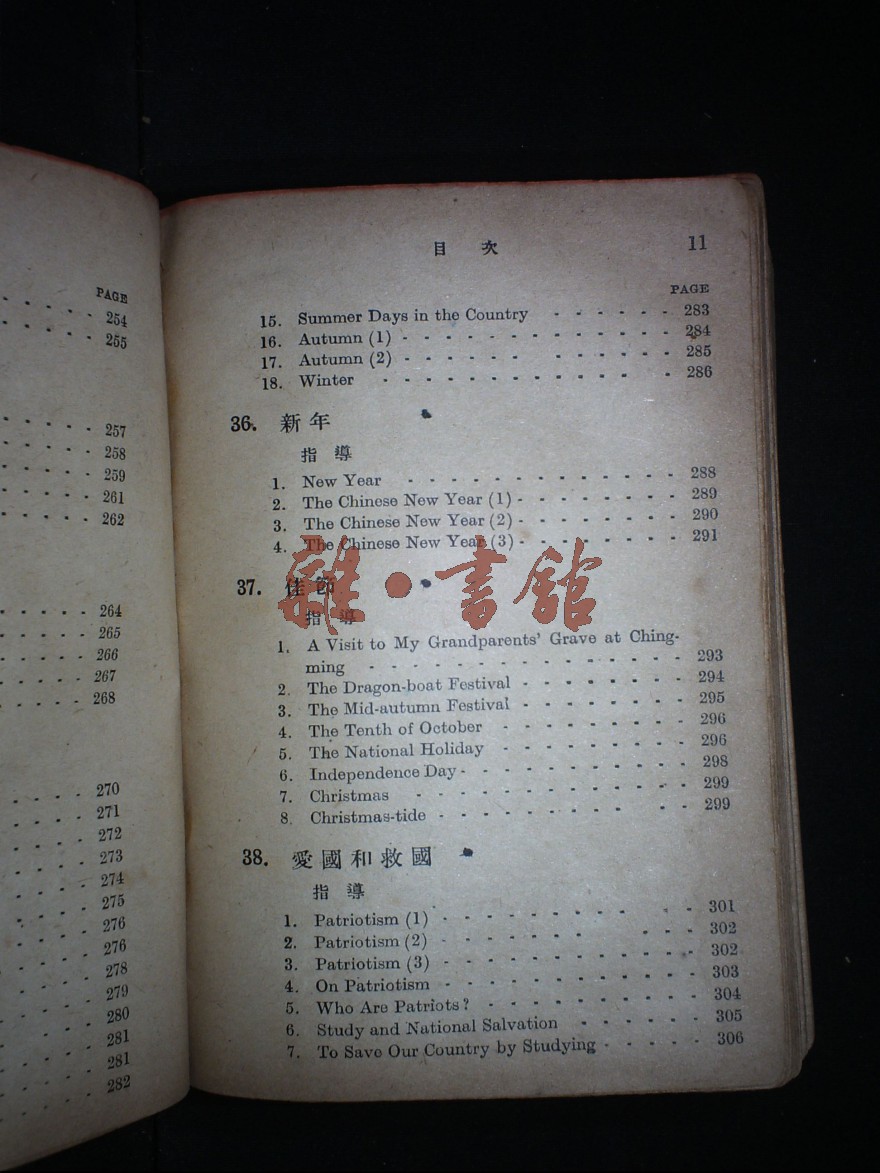 PAGE
254
255
257
258
259
261
262
264
265
266
267
268
270
271
272
273
274
275
276
276
278
279
280
281
281
282
目 次 11
PAGE
15. Summer Days in the Country - - - - - - 283
16. Autumn (1) - - - - - - - - - - - - - 284
17. Autumn (2) - - - - - - - - - - - - - 285
18. Winter - - - - - - - - - - - - - - 286
36. 新年
指 導
1. New Year - - - - - - - - - - - - - 288
2. The Chinese New Year (1) - - - - - - - - 289
3. The Chinese New Year (2) - - - - - - - - 290
4. The Chinese New Year (3) - - - - - - - - 291
37. 佳節
指 導
雜·書館
1. A Visit to My Grandparents' Grave at Ching-
ming - - - - - - - - - - - - - - - 293
2. The Dragon-boat Festival - - - - - - - - 294
3. The Mid-autumn Festival - - - - - - - - 295
4. The Tenth of October - - - - - - - - - 296
5. The National Holiday - - - - - - - - - 296
6. Independence Day - - - - - - - - - - - 298
7. Christmas - - - - - - - - - - - - - 299
8. Christmas-tide - - - - - - - - - - - 299
38. 愛國和救國
指 導
1. Patriotism (1) - - - - - - - - - - - 301
2. Patriotism (2) - - - - - - - - - - - 302
3. Patriotism (3) - - - - - - - - - - - - 302
4. On Patriotism - - - - - - - - - - - - 303
5. Who Are Patriots? - - - - - - - - - - 304
6. Study and National Salvation - - - - - - 305
7. To Save Our Country by Studying - - - - - 306